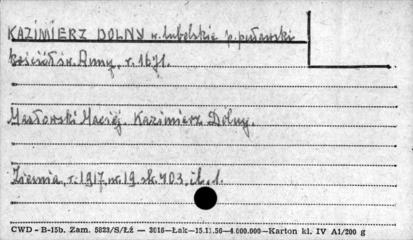 KAZIMIERZ DOLNY w. lubelskie p. puławski
kościół św. Anny, r. 1671.
Masłowski Maciej. Kazimierz Dolny.
Ziemia, r. 1917, nr. 19, sk. 403, il. 1.
CWD - B-15b. Zam. 5823/S/Łź — 3016—Łak—15.11.56—4.000.000—Karton kl. IV A1/200 g